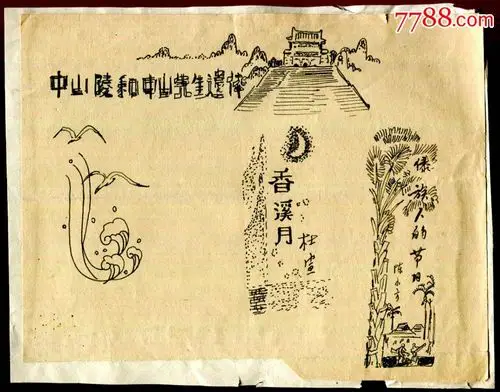 7788.com
中山陵和中山先生遺体
香溪月
杜宣
傣族人的节日